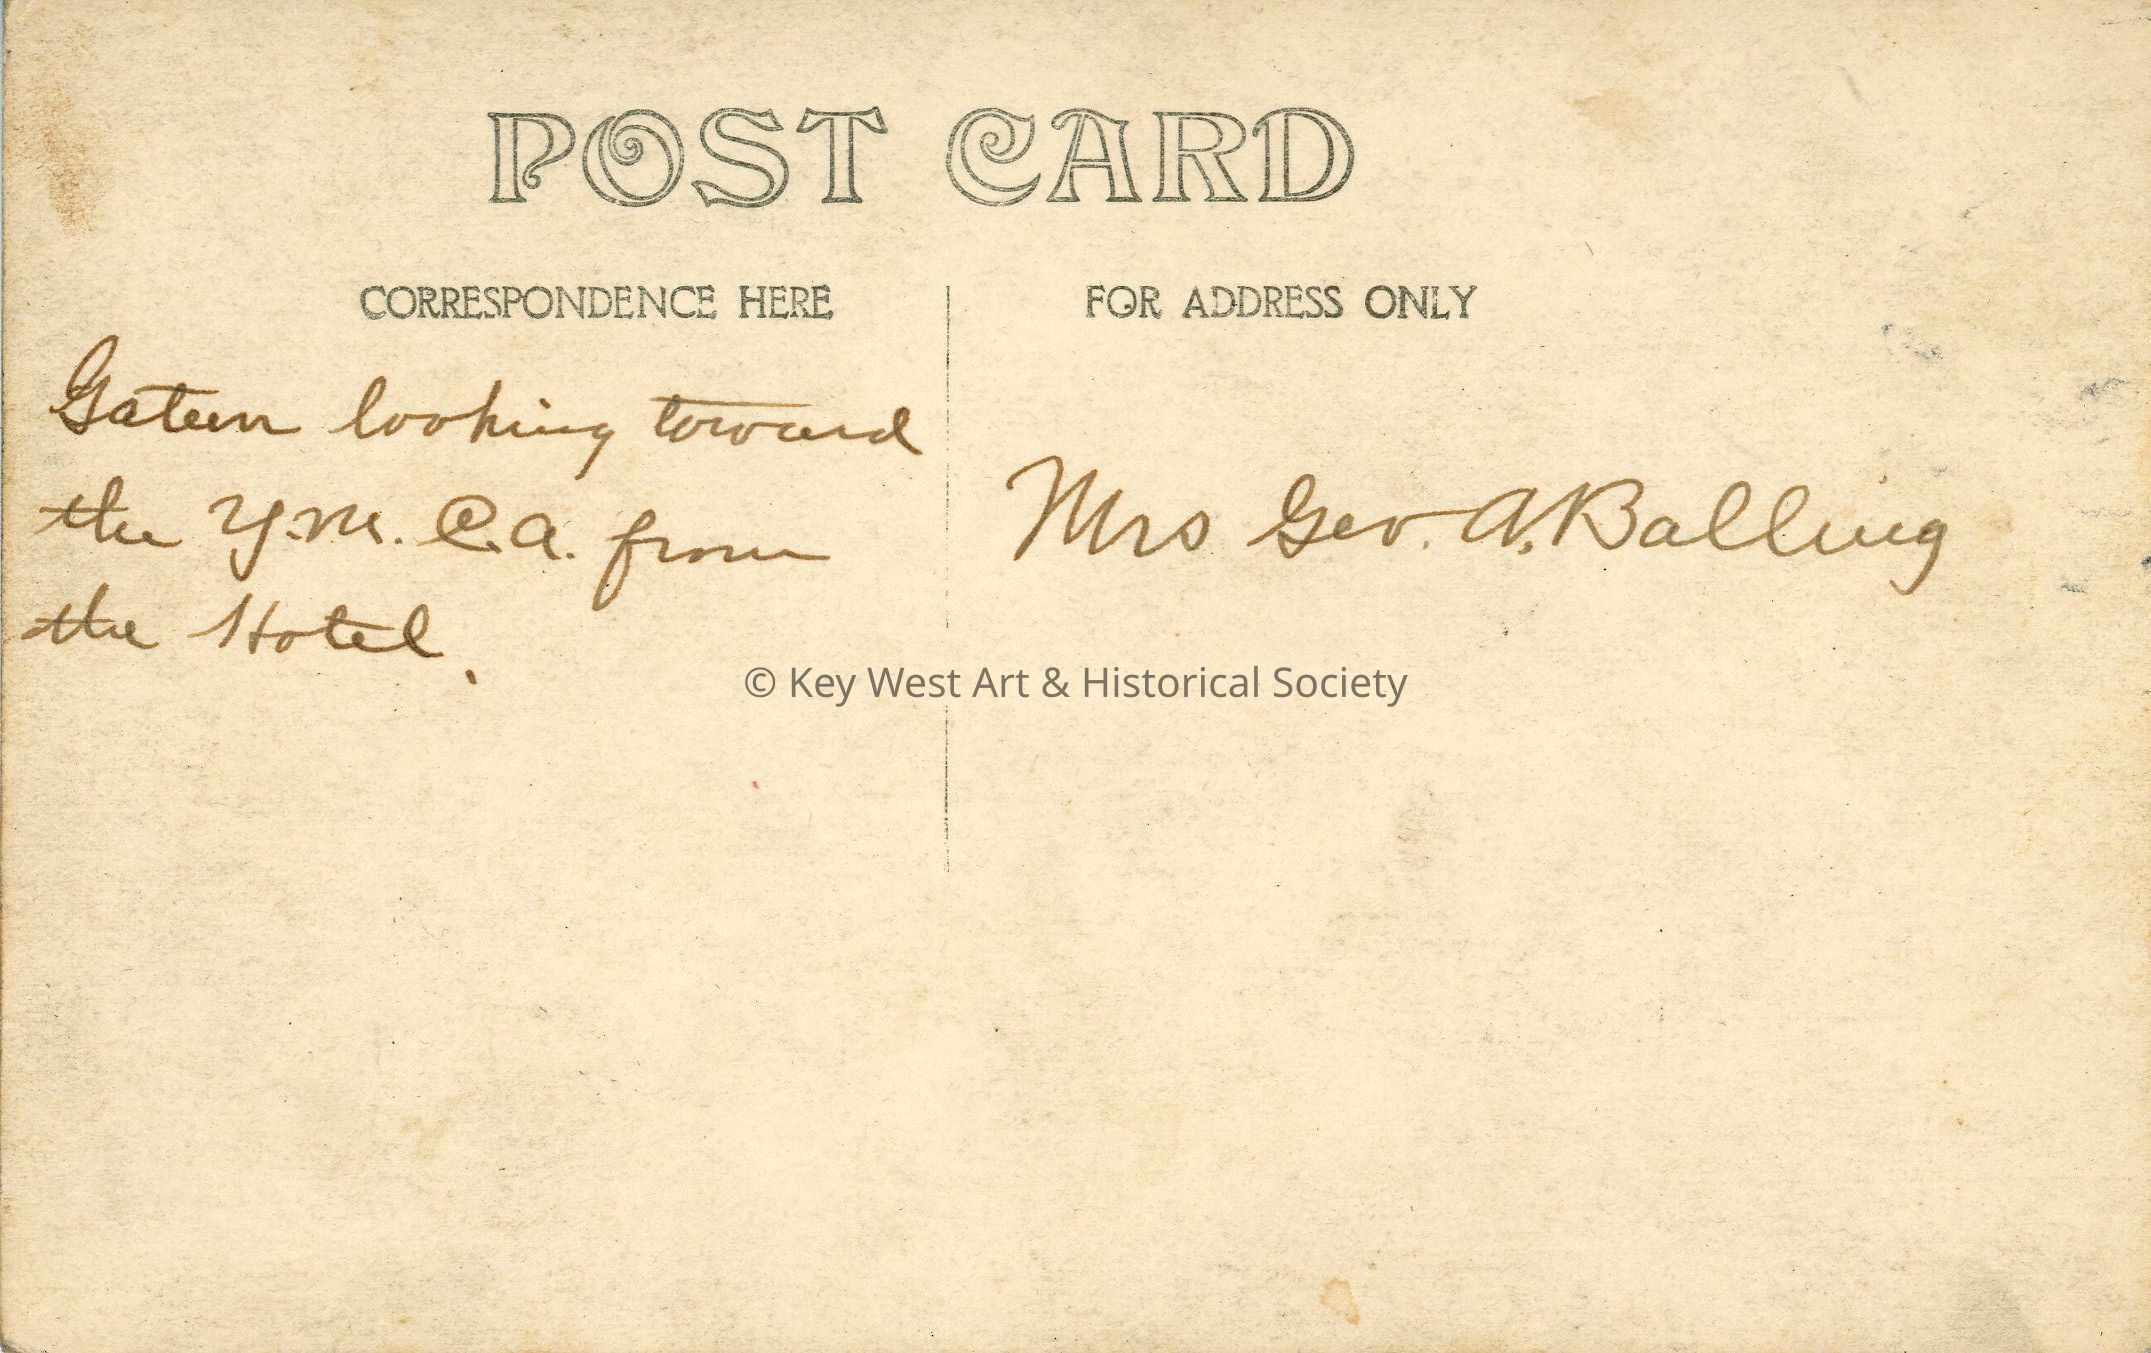 POST CARD
CORRESPONDENCE HERE
FOR ADDRESS ONLY
Gatun looking toward
the Y.M.C.A. from
the Hotel.
Mrs Geo. A. Balling
© Key West Art & Historical Society